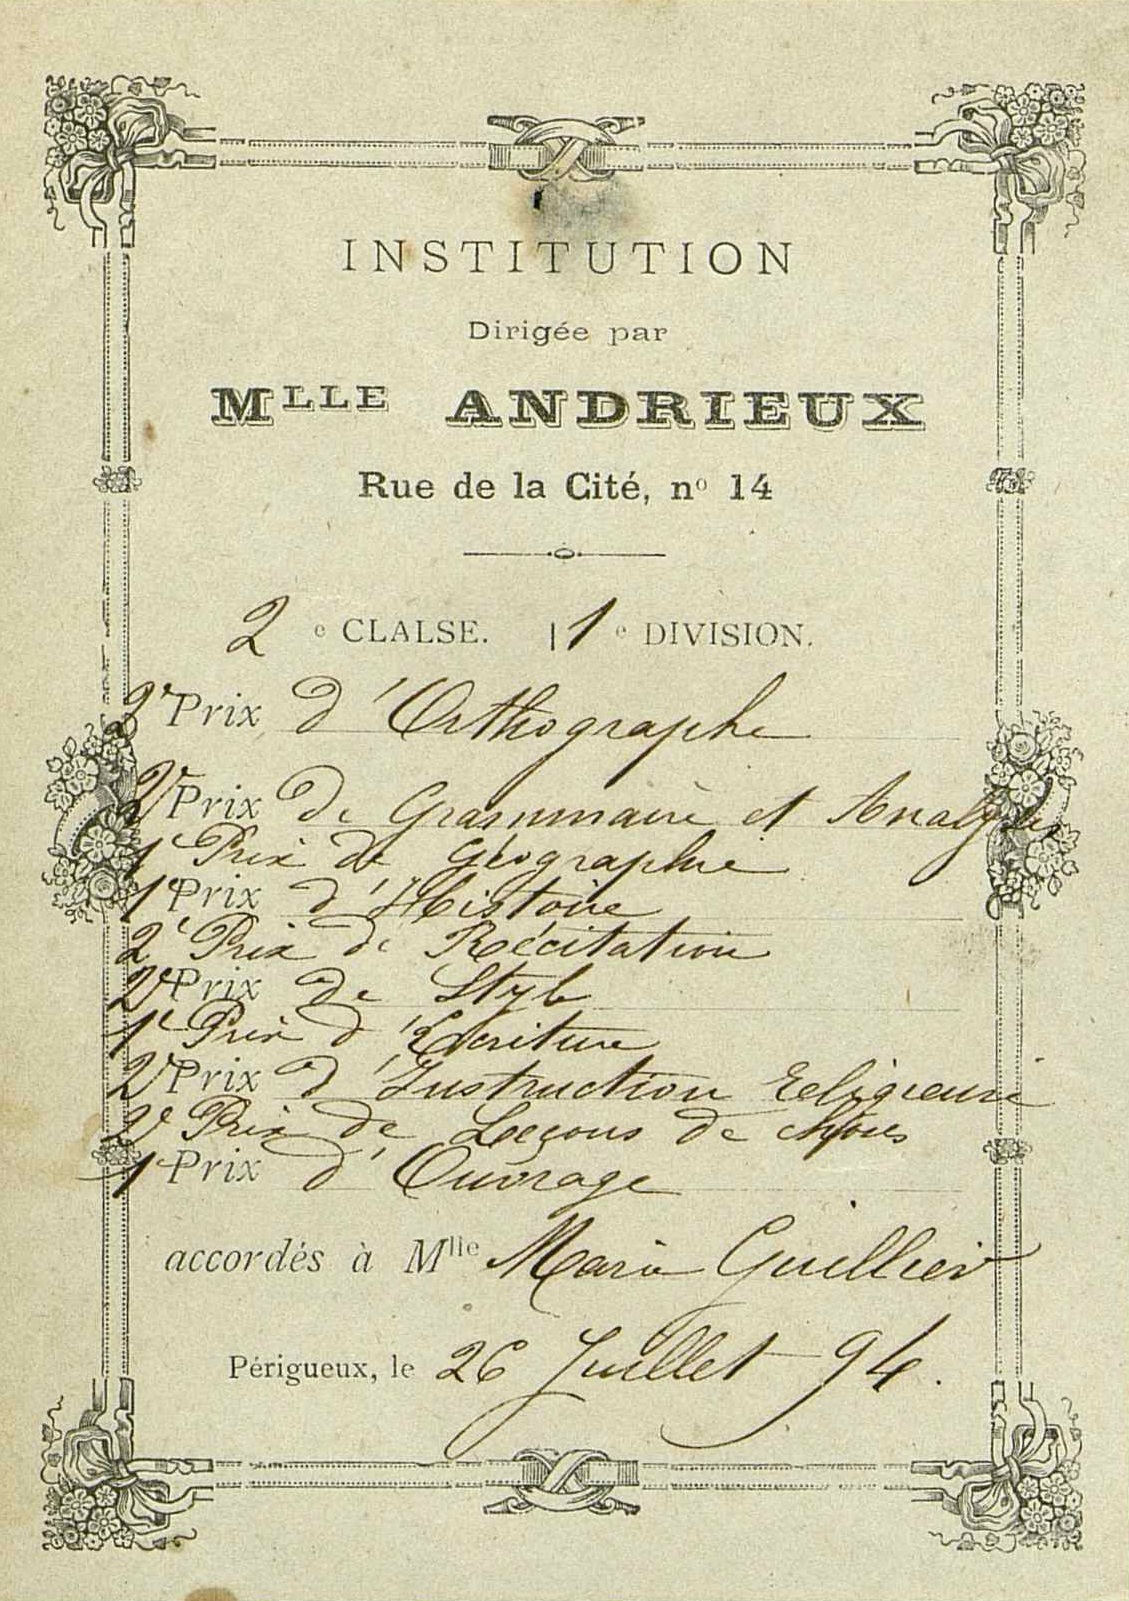 INSTITUTION
Dirigée par
MLLE ANDRIEUX
Rue de la Cité, nº 14
2 e CLALSE. 1 e DIVISION.
2e Prix d'Orthographe
2e Prix de Grammaire et Analyse
1e Prix de Géographie
1e Prix d'Histoire
2e Prix de Récitation
2e Prix de Style
1e Prix d'Ecriture
2e Prix d'Instruction religieuse
2e Prix de Leçons de choses
1 Prix d'Ouvrage
accordés à Mlle Marie Guillier
Périgueux, le 26 Juillet 94.